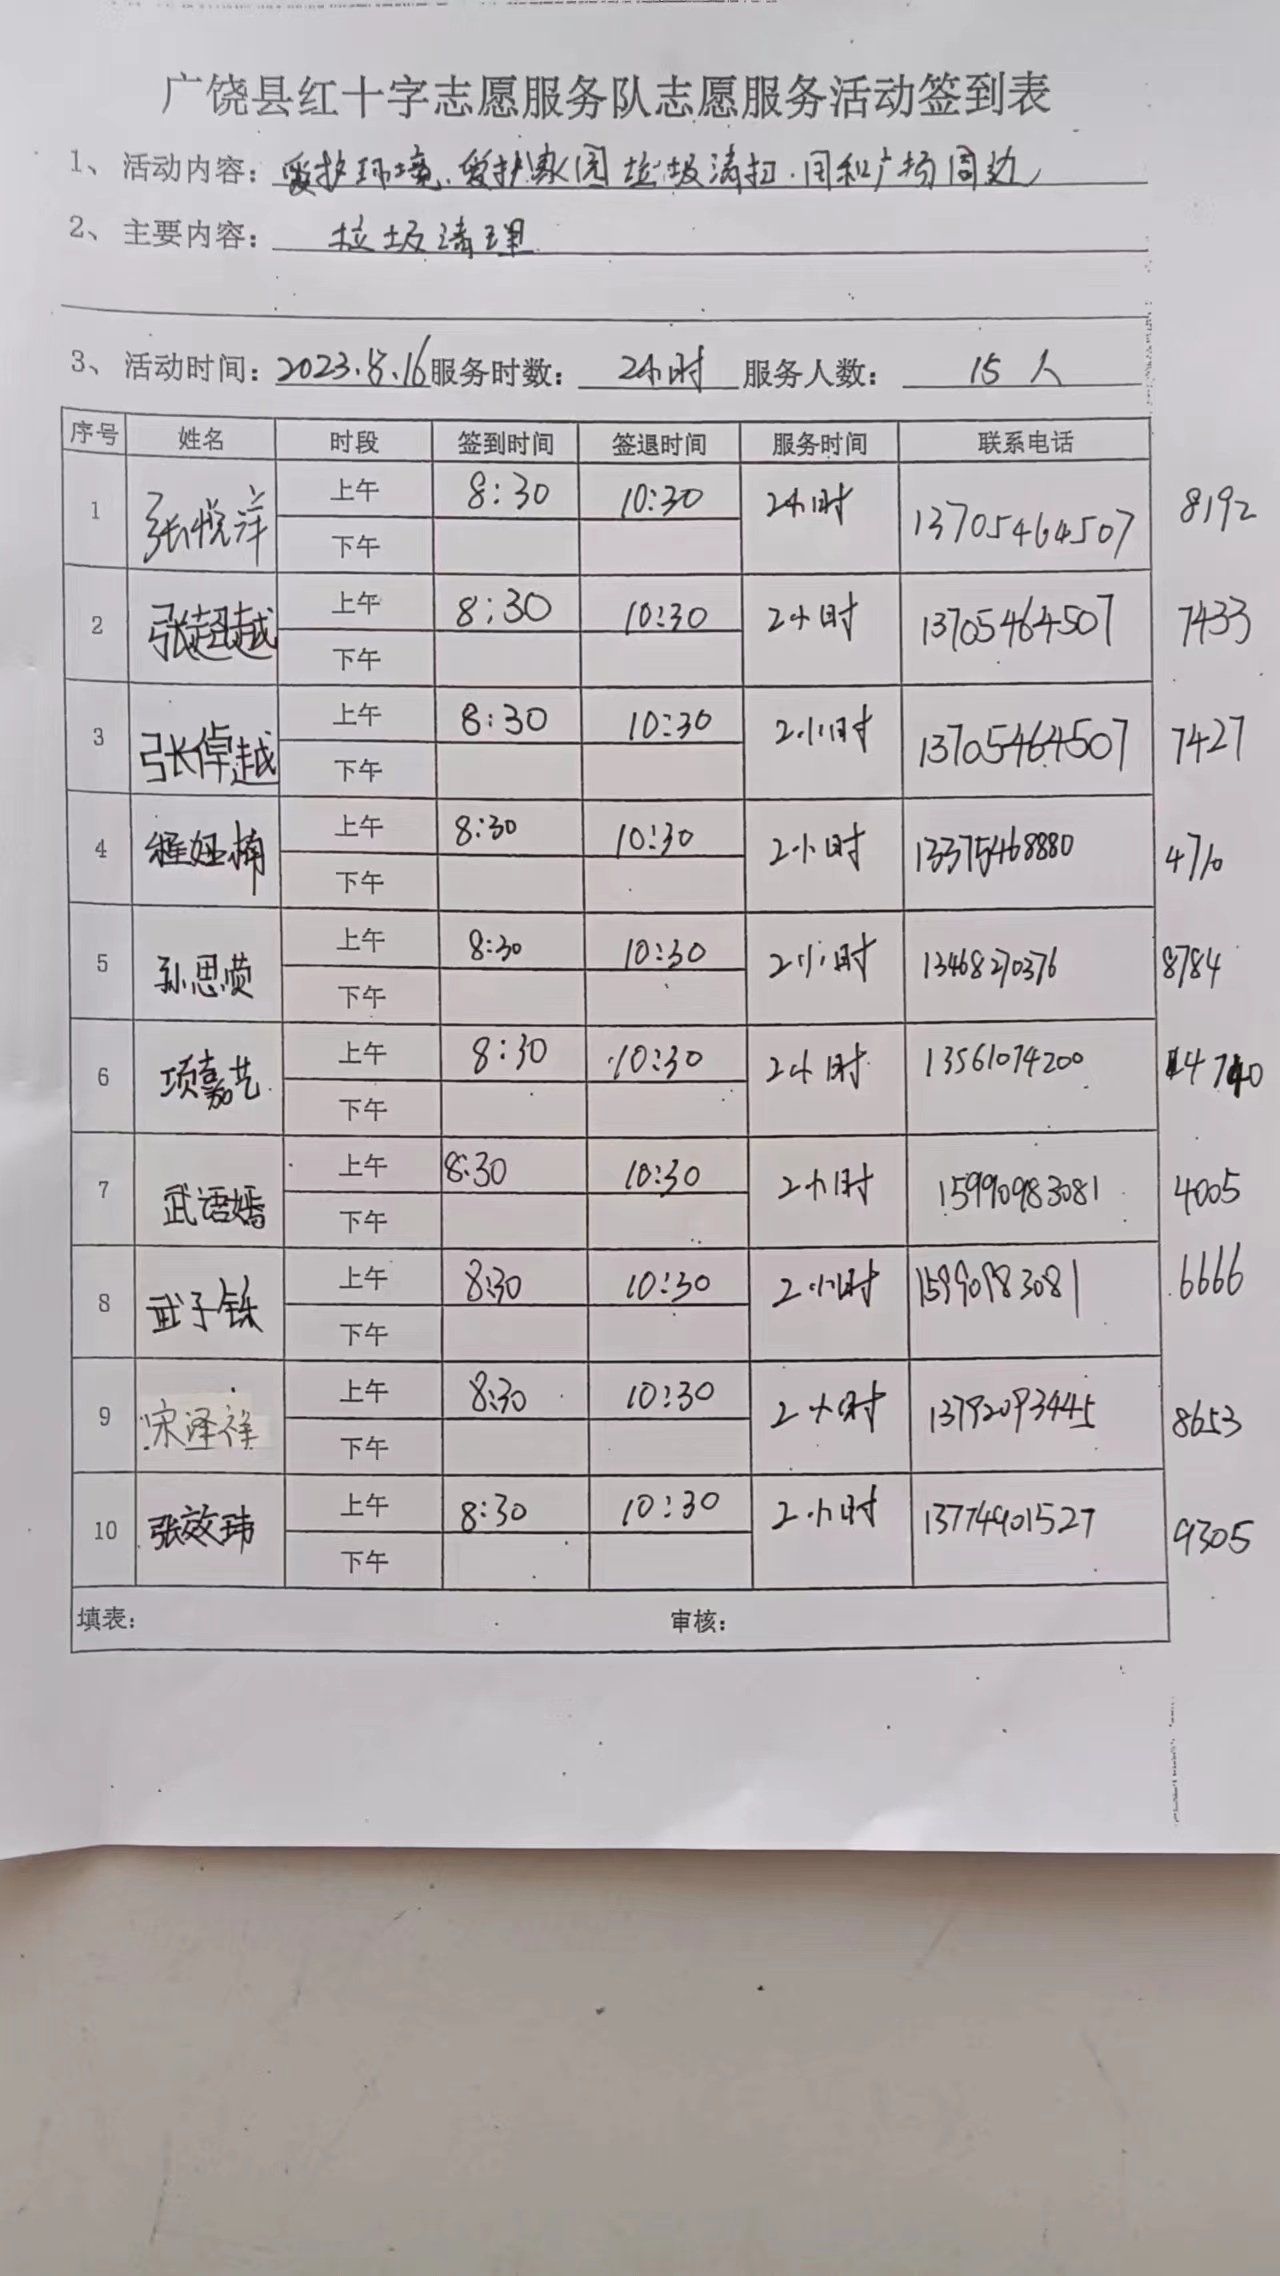 广饶县红十字志愿服务队志愿服务活动签到表
1、活动内容：爱护环境、爱护家园垃圾清扫.同和广场周边
2、主要内容：垃圾清理
3、活动时间：2023.8.16服务时数：2小时 服务人数：15人
序号 姓名 时段 签到时间 签退时间 服务时间 联系电话
1 张悦洋 上午 8:30 10:30 2小时 13705464507 8192
下午
2 张超越 上午 8:30 10:30 2小时 13705464507 7433
下午
3 张倬越 上午 8:30 10:30 2小时 13705464507 7427
下午
4 程姮楠 上午 8:30 10:30 2小时 13375468880 4710
下午
5 孙思 上午 8:30 10:30 2小时 13468270376 8784
下午
6 项嘉艺 上午 8:30 10:30 2小时 13561074200
下午
7 武语嫣 上午 8:30 10:30 2小时 15990983081 4005
下午
8 武子铄 上午 8:30 10:30 2小时 15990983081 6666
下午
9 宋泽祥 上午 8:30 10:30 2小时 13792093445 8653
下午
10 张效玮 上午 8:30 10:30 2小时 13774901527 9305
下午
填表： 审核：